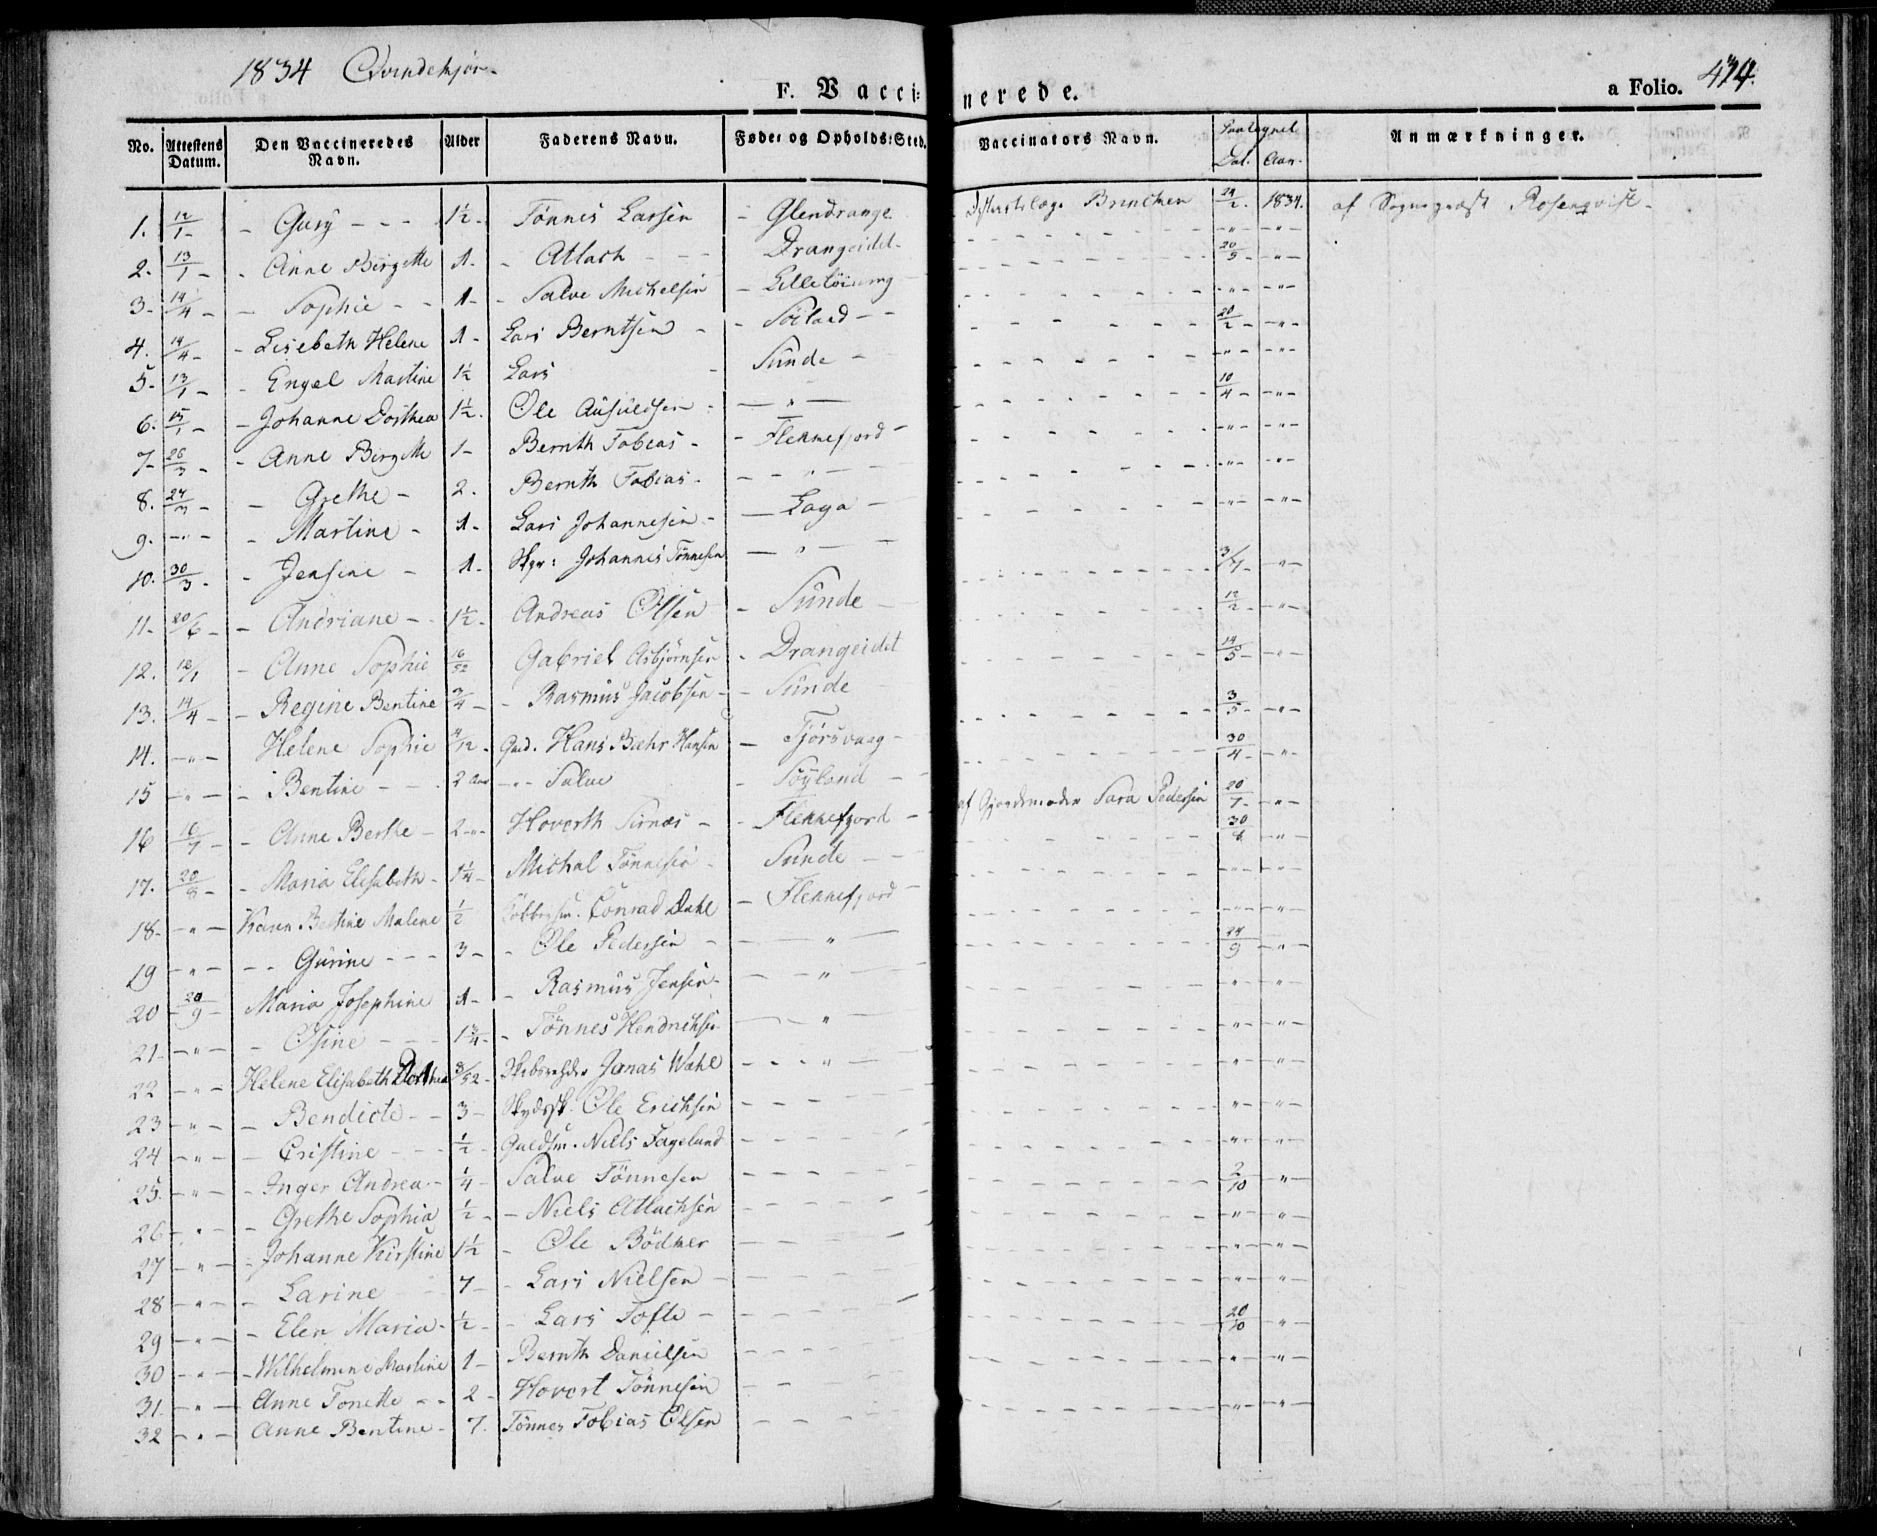 1834 Qvindekjøn.
F. Vaccinerede.
a Folio. 414.
No. | Attestens Datum. | Den Vaccineredes Navn. | Alder | Faderens Navn. | Føde- og Opholds-Sted. | Vaccinators Navn. | Dat. Aar. | Anmærkninger.
1. 12/1 - Gury - 1½ - Tønnes Larsen - Glendrange - Brunchen 24/2. 1834. af Sognepræst Rosenqvist
2. 13/1 - Anne Birgitte 1 - Atlach - Drangeidet - " - " -
3 - 14/4 - Sophie - 1 - Salve Michelsen - 20/5 - " -
4. 14/4 - Lisebeth Helene 1 - Lars Berntsen - Söiland - " - " -
5 - 13/1 - Engel Martine 1½ Lars - Sunde - 20/2 - " -
6. 15/1 - Johanne Dorthea 1½. Ole - " - " - " -
7 - 26/3 - Anne Birgitte 1 - Bernth Tobias - Flekkefjord - 10/4 - " -
8. 27/3 - Grethe - 2. Bernth Tobias - " - " - " -
9. - " - Martine - 1 - Lars Johannesen - Laga - " - " -
10. 30/3 - Jensine - 1 - Johannes Tönnesen - " - " - " -
11. 20/6 - Andriane - 1½ - Andreas Olsen - Sunde - 3/7 - " -
12. 12/1 - Anne Sophie 16/52 Gabriel Asbjørnsen - Drangeidet 12/2 - " -
13. 14/4 - Regine Bentine 3/4 - Rasmus Jacobsen - Sunde 14/5 - " -
14. - " - Helene Sophie 4/12 - Hans Bæhr Hansen - Fjørsvaag - 3/5 - " -
15 - " - Bentine - 2 Aar - " - Salve - Söyland - 30/4 - " -
16 16/7 - Anne Berthe - 2 - " - Hovorth Sirnæs - Flekkefjord - af Gjordemoder Sara Pedersen 20/7 - " -
17. 20/8 - Maria Elisabeth - 1¼ - Michal Tönnesen - Sunde - 30/8 - " -
18 - " - Karen Bertine Malene ½ Conrad Dahl - Flekkefjord - " -
19 - " - Gurine - 3 - Ole Pedersen - " -
20 20/9 - Maria Josephine 1 - Rasmus Jensen - " - 24/9 - " -
21 - " - Osine - 1¾ - Tönnes Hendrichsen - " - " - " -
22 - " - Helene Elisabeth Dorthea 8/52 - Jonas Wahl - " - " - " -
23 - " - Bendicte - 3 - Ole Erichsen - " - " -
24 - " - Cristine - ½ - Guldsm. Niels Fageland - " - " -
25 - " - Inger Andrea - ¼ - Salve Tönnesen - " - " -
26 - " - Grethe Sophia ½ - Niels Atlachsen - 2/10 - " -
27 - " - Johanne Kirstine 1½ - Ole Bödker - " - " -
28 - " - Larine 7 - Lars Nielsen - " - " -
29 - " - Elen Maria - ½ - Lars Tofte - " - " -
30 - " - Wilhelmine Martine 1 - Bernth Danielsen - 20/10 - " -
31 - " - Anne Tonette - 2 - Hovort Tönnesen - " - " -
32 - " - Anne Bentine - 7. Tönnes Tobias Olsen - " - " -